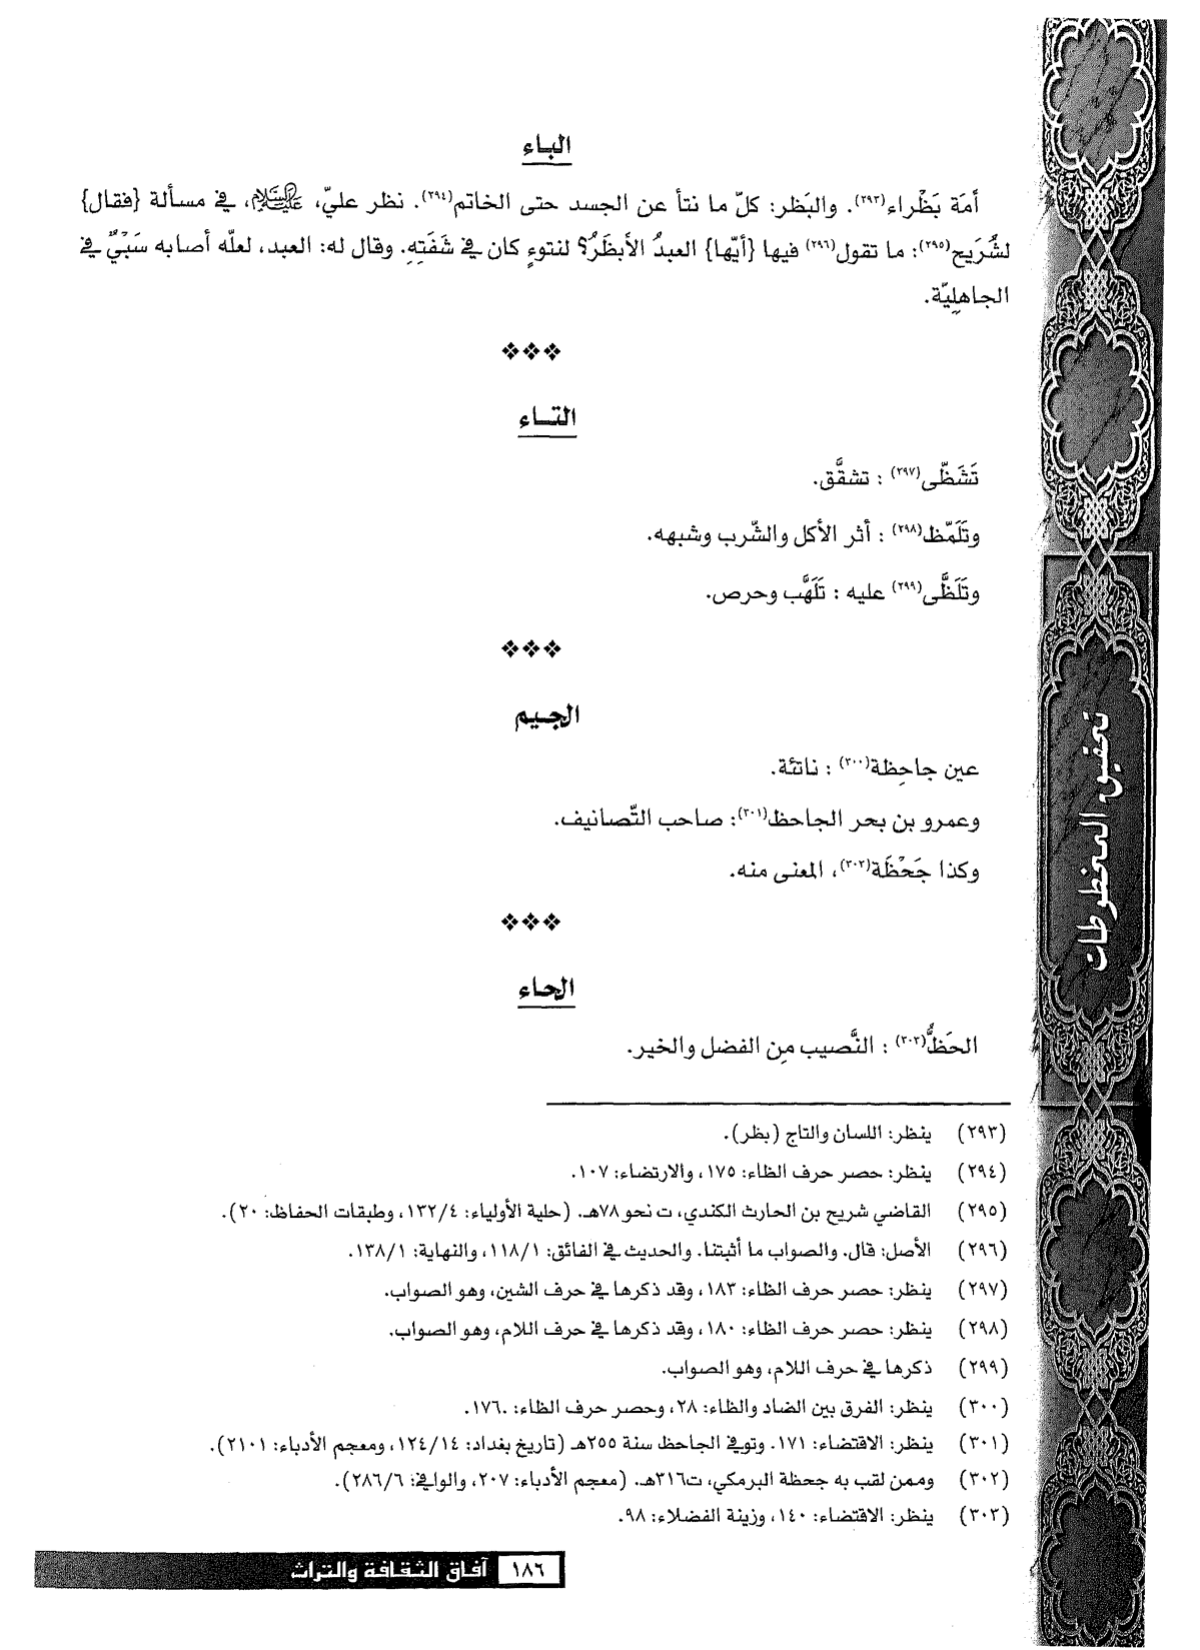 الباء
أَمَة بَظْراء(٢٩٣). والبَظر: كلّ ما نتأ عن الجسد حتى الخاتم(٢٩٤). نظر عليّ، عليه السلام، في مسألة {فقال}
لشُرَيح(٢٩٥): ما تقول(٢٩٦) فيها {أيّها} العبدُ الأبظَرُ؟ لنتوءٍ كان في شَفَتِهِ. وقال له: العبد، لعلّه أصابه سَبْيٌ في
الجاهلِيّة.
❖❖❖
التاء
تَشَظّى(٢٩٧) : تشقَّق.
وتَلَمّظ(٢٩٨) : أثر الأكل والشّرب وشبهه.
وتَلَظَّى(٢٩٩) عليه : تَلَهَّب وحرص.
❖❖❖
الجيم
عين جاحِظة(٣٠٠) : ناتئة.
وعمرو بن بحر الجاحظ(٣٠١): صاحب التّصانيف.
وكذا جَحْظَة(٣٠٢)، المعنى منه.
❖❖❖
الحاء
الحَظُّ(٣٠٣) : النَّصيب مِن الفضل والخير.
(٢٩٣) ينظر: اللسان والتاج (بظر).
(٢٩٤) ينظر: حصر حرف الظاء: ١٧٥، والارتضاء: ١٠٧.
(٢٩٥) القاضي شريح بن الحارث الكندي، ت نحو ٧٨هـ. (حلية الأولياء: ١٣٢/٤، وطبقات الحفاظ: ٢٠).
(٢٩٦) الأصل: قال. والصواب ما أثبتنا. والحديث في الفائق: ١١٨/١، والنهاية: ١٣٨/١.
(٢٩٧) ينظر: حصر حرف الظاء: ١٨٣، وقد ذكرها في حرف الشين، وهو الصواب.
(٢٩٨) ينظر: حصر حرف الظاء: ١٨٠، وقد ذكرها في حرف اللام، وهو الصواب.
(٢٩٩) ذكرها في حرف اللام، وهو الصواب.
(٣٠٠) ينظر: الفرق بين الضاد والظاء: ٢٨، وحصر حرف الظاء: ١٧٦.
(٣٠١) ينظر: الاقتضاء: ١٧١. وتوفي الجاحظ سنة ٢٥٥هـ (تاريخ بغداد: ١٢٤/١٤، ومعجم الأدباء: ٢١٠١).
(٣٠٢) وممن لقب به جحظة البرمكي، ت٣١٦هـ. (معجم الأدباء: ٢٠٧، والوافي: ٢٨٦/٦).
(٣٠٣) ينظر: الاقتضاء: ١٤٠، وزينة الفضلاء: ٩٨.
تحقيق المخطوطات
١٨٦ آفاق الثقافة والتراث